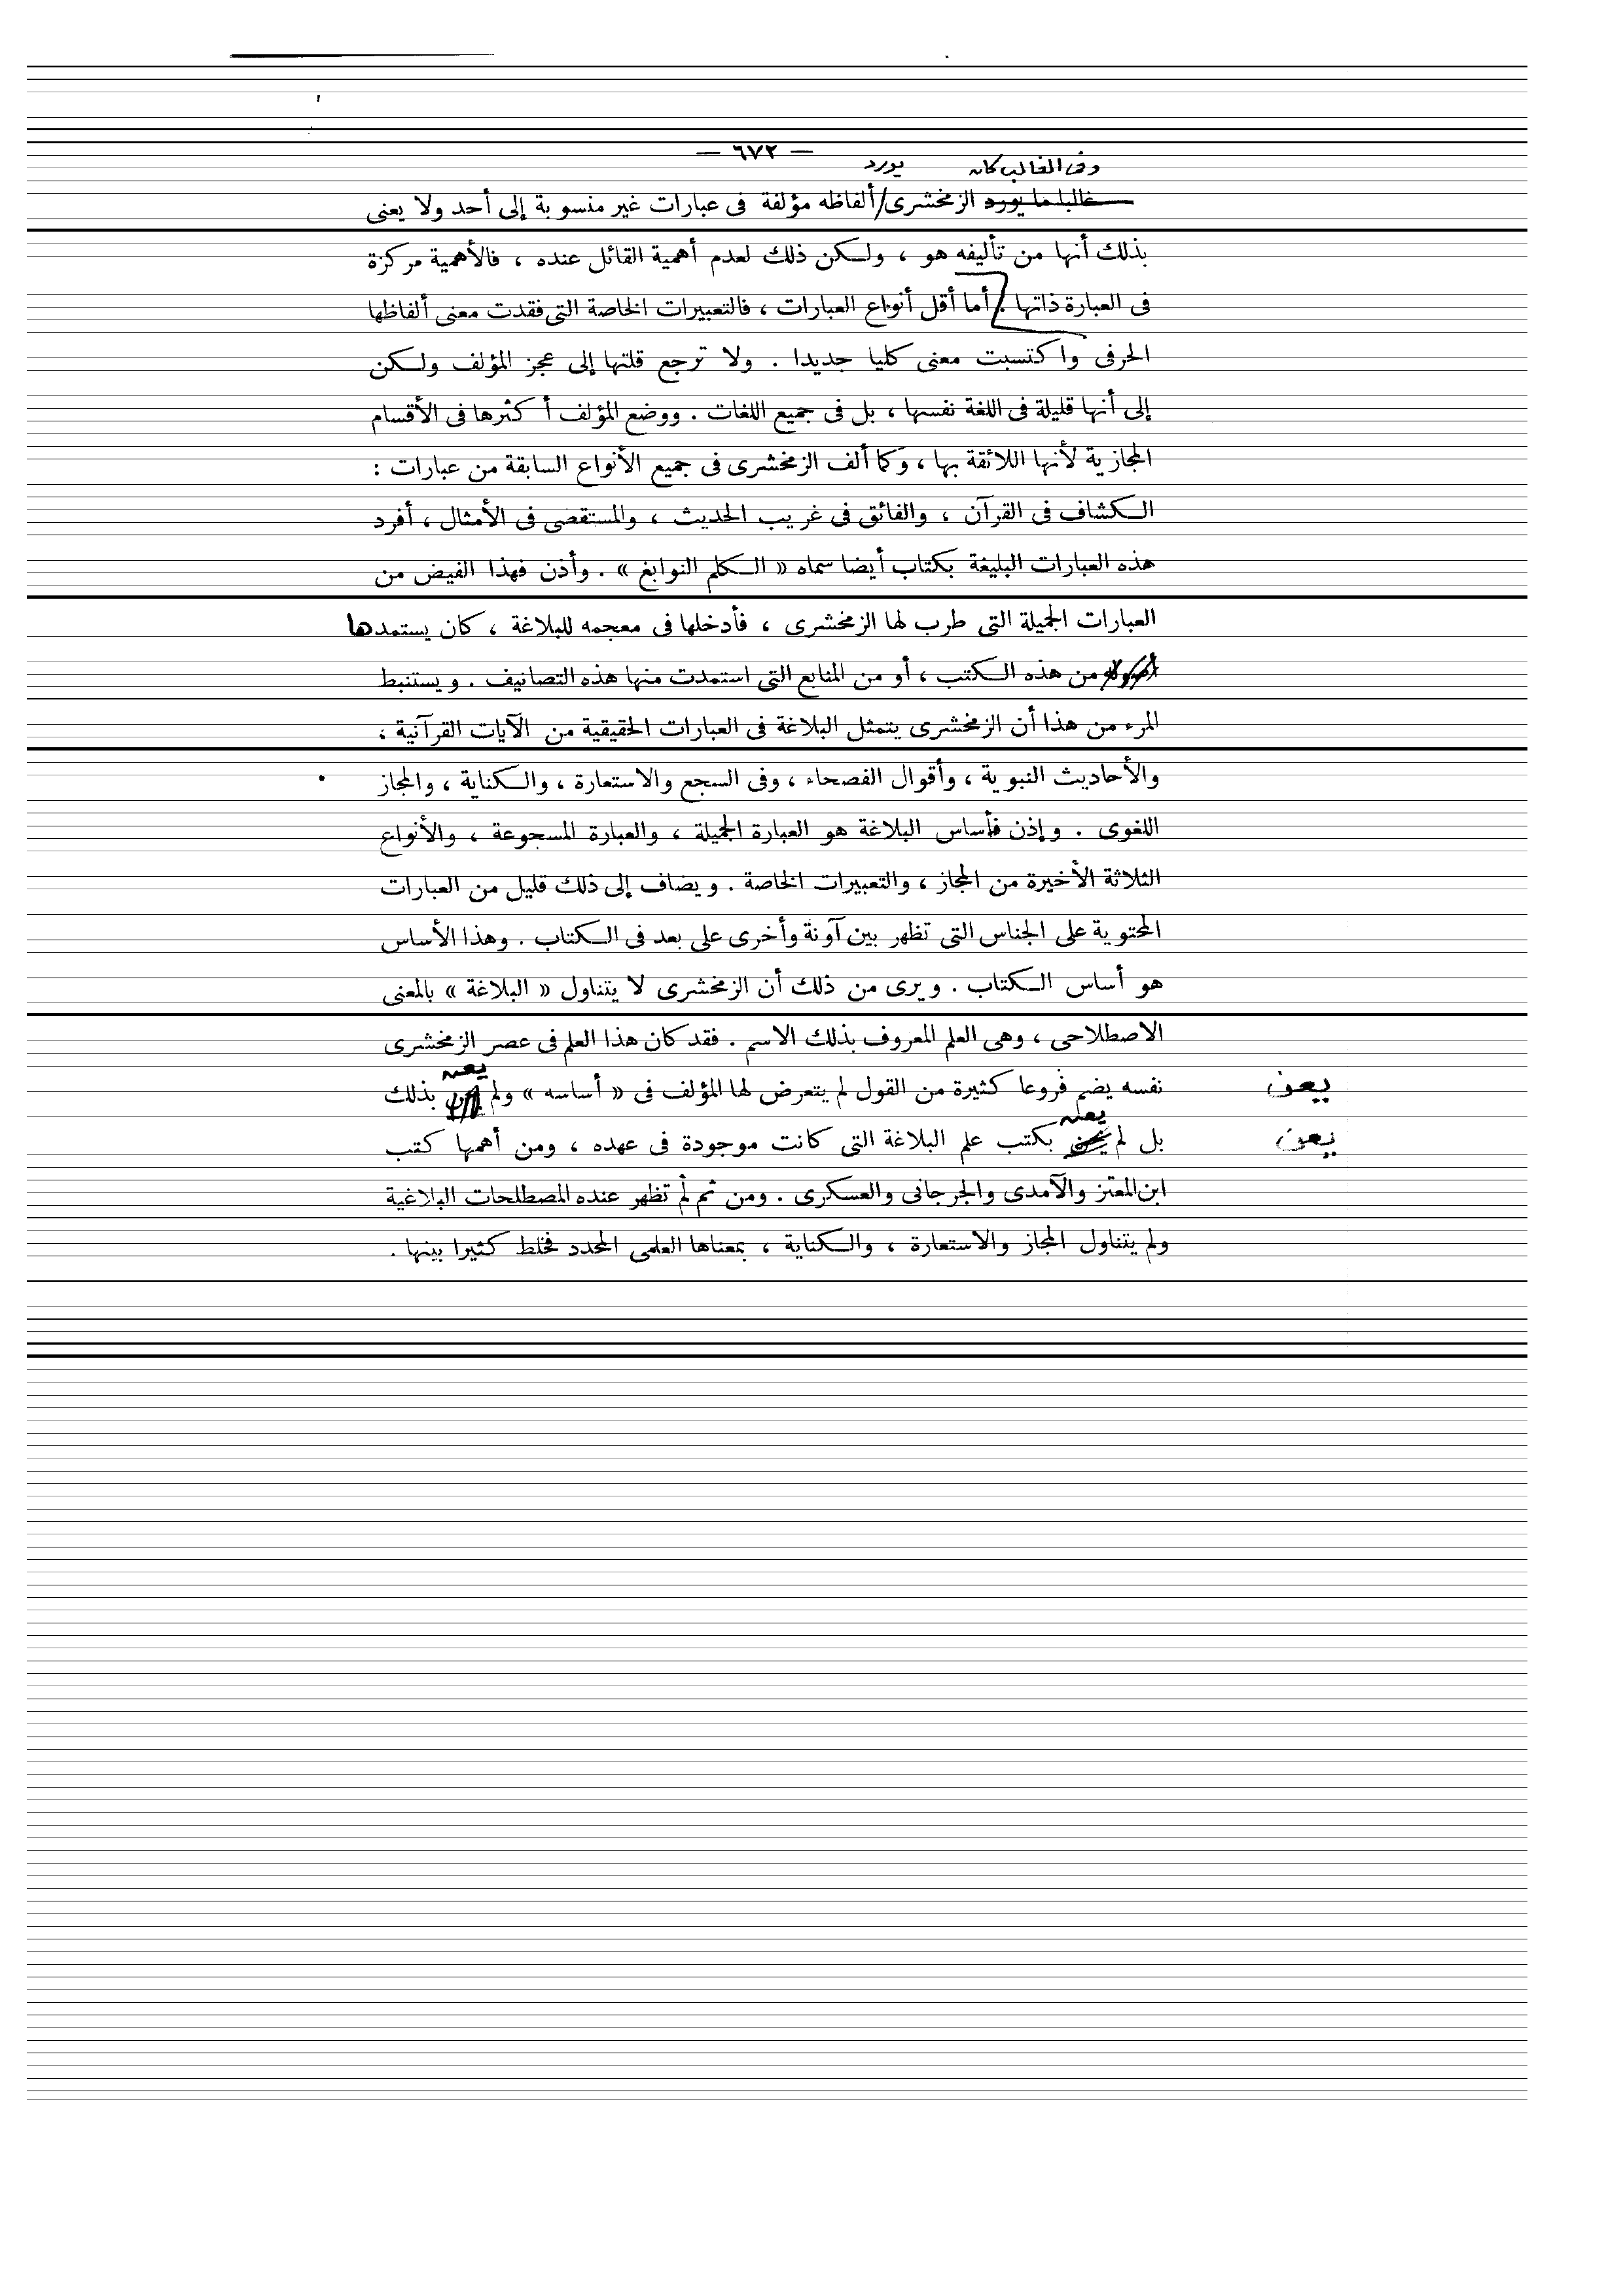 — ٦٧٢ —
وفى الغالب كان يورد
غالبا ما يورد الزمخشرى/ألفاظه مؤلفة فى عبارات غير منسوبة إلى أحد ولا يعنى
بذلك أنها من تأليفه هو ، ولكن ذلك لعدم أهمية القائل عنده ، فالأهمية مركزة
فى العبارة ذاتها . أما أقل أنواع العبارات ، فالتعبيرات الخاصة التى فقدت معنى ألفاظها
الحرفى واكتسبت معنى كليا جديدا . ولا ترجع قلتها إلى عجز المؤلف ولكن
إلى أنها قليلة فى اللغة نفسها ، بل فى جميع اللغات . ووضع المؤلف أكثرها فى الأقسام
المجازية لأنها اللائقة بها ، وكما ألف الزمخشرى فى جميع الأنواع السابقة من عبارات :
الكشاف فى القرآن ، والفائق فى غريب الحديث ، والمستقصى فى الأمثال ، أفرد
هذه العبارات البليغة بكتاب أيضا سماه « الكلم النوابغ » . وأذن فهذا الفيض من
العبارات الجميلة التى طرب لها الزمخشرى ، فأدخلها فى معجمه للبلاغة ، كان يستمدها
من هذه الكتب ، أو من المنابع التى استمدت منها هذه التصانيف . ويستنبط
المرء من هذا أن الزمخشرى يتمثل البلاغة فى العبارات الحقيقية من الآيات القرآنية ،
والأحاديث النبوية ، وأقوال الفصحاء ، وفى السجع والاستعارة ، والكناية ، والمجاز
اللغوى . وإذن فأساس البلاغة هو العبارة الجميلة ، والعبارة المسجوعة ، والأنواع
الثلاثة الأخيرة من المجاز ، والتعبيرات الخاصة . ويضاف إلى ذلك قليل من العبارات
المحتوية على الجناس التى تظهر بين آونة وأخرى على بعد فى الكتاب . وهذا الأساس
هو أساس الكتاب . ويرى من ذلك أن الزمخشرى لا يتناول « البلاغة » بالمعنى
الاصطلاحى ، وهى العلم المعروف بذلك الاسم . فقد كان هذا العلم فى عصر الزمخشرى
يعن
نفسه يضم فروعا كثيرة من القول لم يتعرض لها المؤلف فى « أساسه » ولم بذلك
يعن
يعن
بل لم بكتب علم البلاغة التى كانت موجودة فى عهده ، ومن أهمها كتب
يعن
ابن المعتز والآمدى والجرجانى والعسكرى . ومن ثم لم تظهر عنده المصطلحات البلاغية
ولم يتناول المجاز والاستعارة ، والكناية ، بمعناها العلمى المحدد فخلط كثيرا بينها .